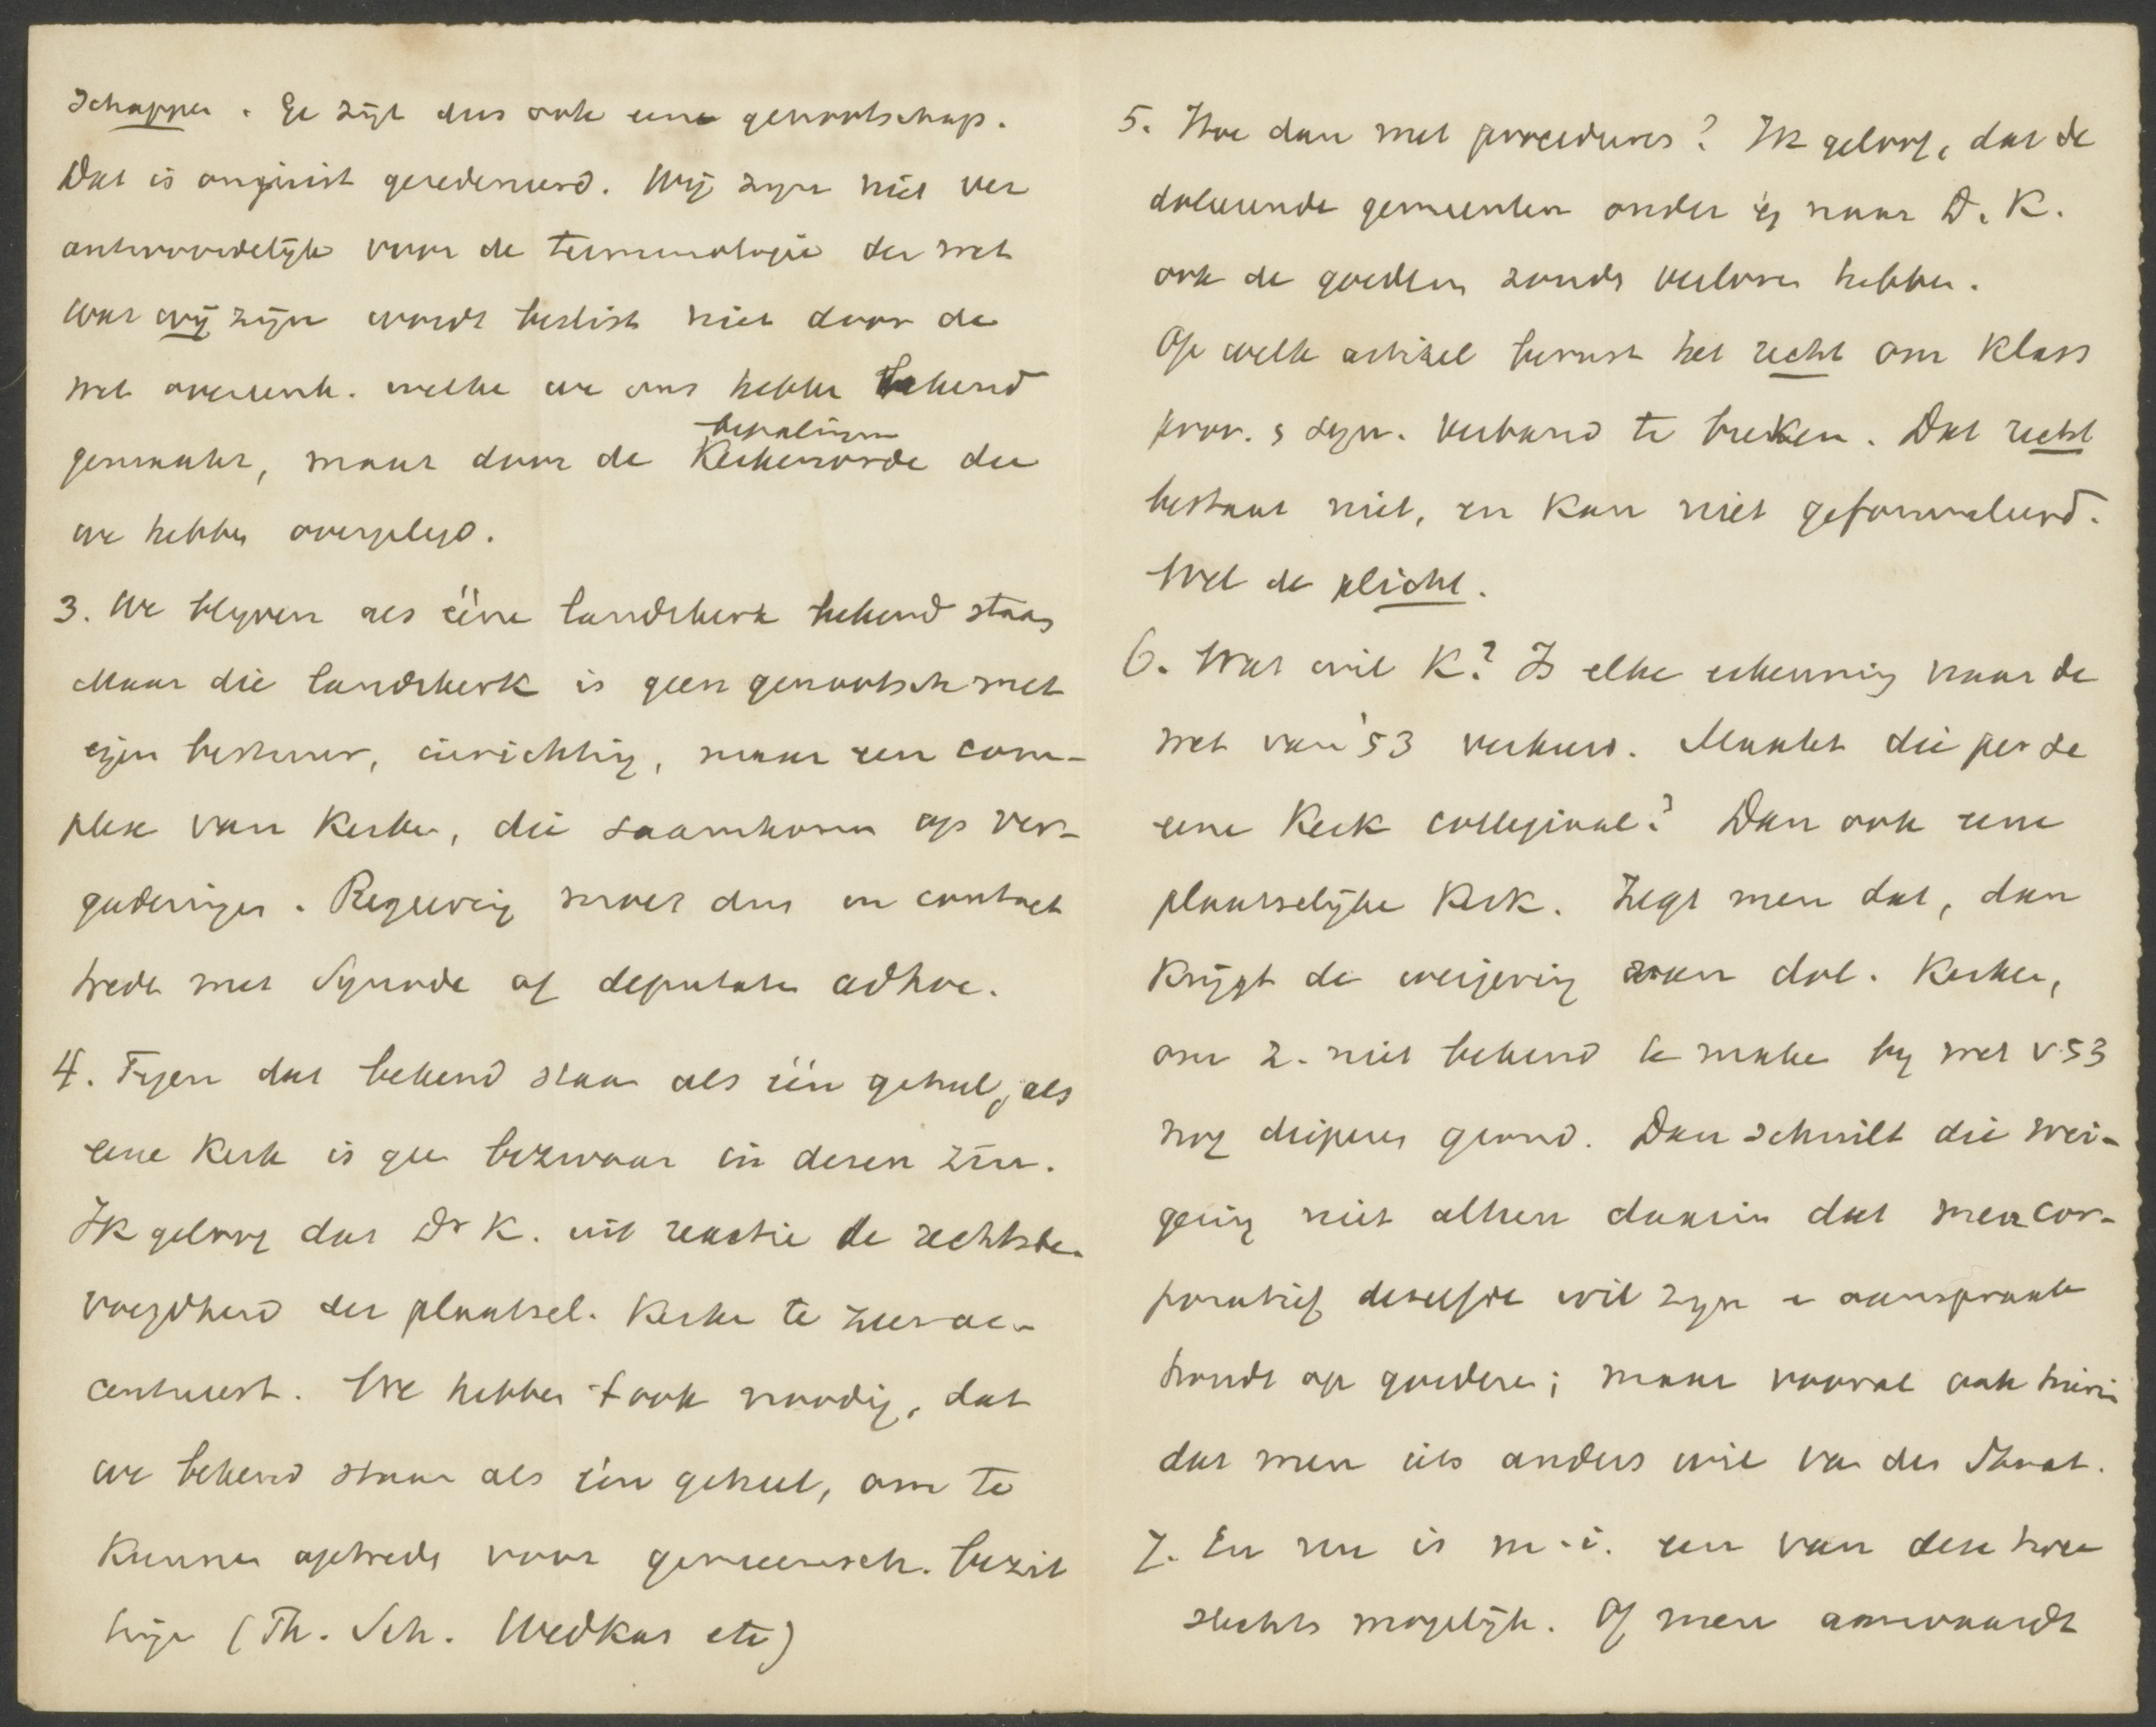 schappen. Ge zijt dus ook eene genootschap.
Dat is onjuist geredeneerd. Wij zijn niet ver
antwoordelijk voor de terminologie der wet
wat wij zijn wordt beslist niet door de
wet overeenk. welke we ons hebben bekend
bepalingen
gemaakt, maar door de Kerkenorde die
we hebben overgelegd.
3. We blijven als ééne landskerk bekend staan
Maar die landskerk is geen genootsch met
eigen bestuur, inrichting, maar een com-
plex van Kerken, die saamkomen op ver-
gaderingen. Regeering moet dus in contact
treden met Synode of deputaten adhoc.
4. Tegen dat bekend staan als één geheel, als
eene Kerk is geen bezwaar in dezen zin.
Ik geloof dat Dr K. uit reactie de rechtsbe-
voegdheid der plaatsel. Kerken te zeer ac-
centueert. We hebben t ook noodig, dat
we bekend staan als één geheel, om te
Kunnen optreden voor gemeensch. bezit
(Th. Sch. Wedkas etc)
5. Hoe dan met procedures? Ik geloof, dat de
doleerende gemeenten onder en naar D. K.
ook de goederen zouden verloren hebben.
Op welk artikel berust het recht om Klass
prov. & syn. verband te breken. Dat recht
bestaat niet, en Kan niet geformuleerd.
Wel de plicht.
6. Wat wil K? Is elke erkenning naar de
wet van '53 verkeerd. Maakt die per se
eene Kerk collegiaal? Dan ook eene
plaatselijke Kerk. Zegt men dat, dan
Krijgt de weigering van dol. Kerken,
om z. niet bekend te maken bij wet v. 53
nog dieperen grond. Dan schuilt die wei-
gering niet alleen daarin dat men cor-
poratief dezelfde wil zijn en aanspraak
houdt op goederen; maar vooral ook hierin
dat men iets anders wil van den Staat.
7. En nu is m.i. een van deze twee
slechts mogelijk. Of men aanvaardt